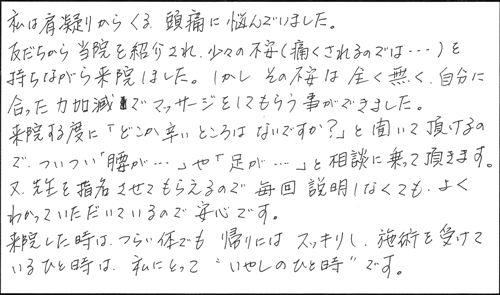 私は肩凝りからくる頭痛に悩んでいました。
友だちから当院を紹介され、少々の不安(痛くされるのでは…)を
持ちながら来院しました。しかしその不安は全く無く、自分に
合った力加減でマッサージをしてもらう事ができました。
来院する度に「どこか辛いところはないですか?」と聞いて頂けるの
で、ついつい「腰が…」や「足が…」と相談に乗って頂きます。
又、先生を指名させてもらえるので毎回説明しなくても、よく
わかっていただいているので安心です。
来院した時は、つらい体でも帰りにはスッキリし、施術を受けて
いるひと時は、私にとって"いやしのひと時"です。